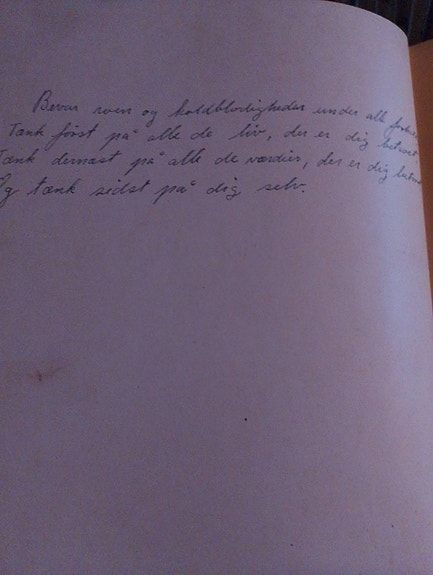 Bevar roen og koldblodigheden under alle forhold
Tænk først på alle de liv, der er dig betroet
Tænk dernæst på alle de værdier, der er dig betroet
Og tænk sidst på dig selv.